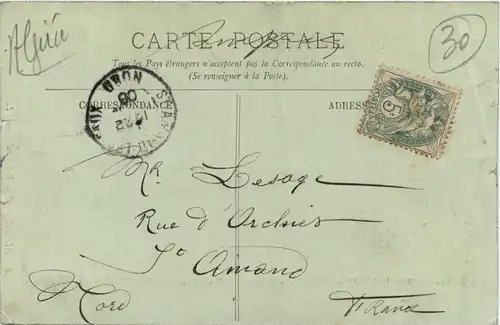 Algérie
30
CARTE POSTALE
Tous les Pays étrangers n'acceptent pas la Correspondance au recto.
(Se renseigner à la Poste).
CORRESPONDANCE
ADRESSE
ORON
5c
Mr Lesage
Rue d'Orchies
St Amand
Nord
France